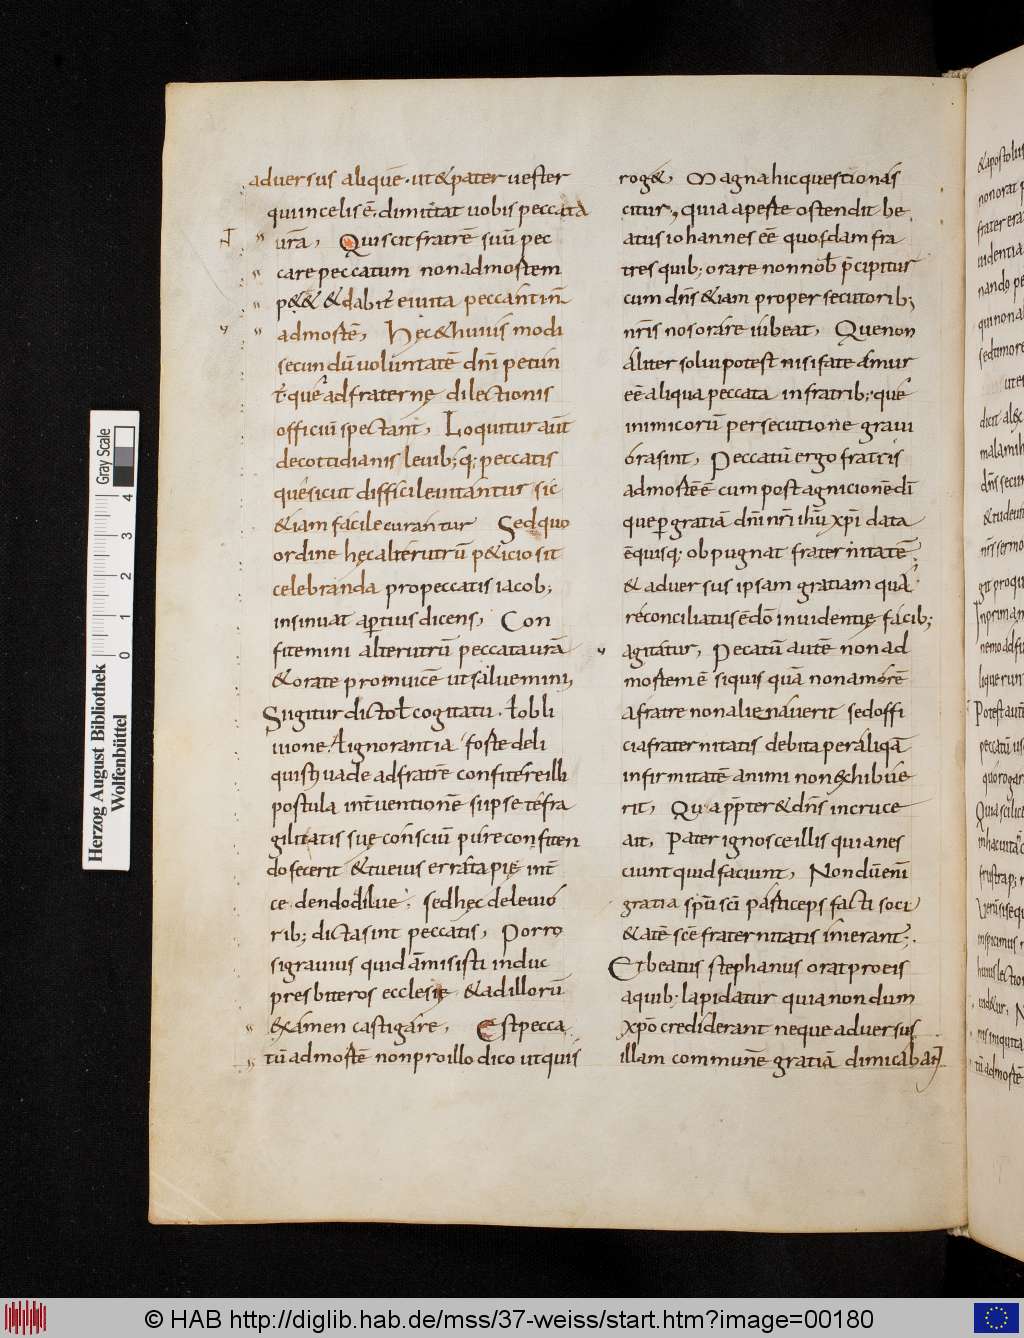 aduersus aliquē. ut & pater uester
qui in celis ē. dimittat uobis peccata
urā, Qui scit fratrē suū pec
care peccatum non ad mortem
p&& & dabit̄ ei uita peccantiū
ad mortē, Hęc & huius modi
secundū uoluntatē dn̄i petun
t̄ quę ad fraternę dilectionis
officiū spectant, Loquitur aūt
de cottidianis leuib;q; peccatis
quę sicut difficile uitantur sic
& iam facile curantur Sed quo
ordine hęc alterutrū p&icio sit
celebranda pro peccatis iacob;
insinuat apertius dicens, Con
fitemini alterutrū peccata urā
& orate pro inuicē ut saluemini,
Si igitur dicto ł cogitatu. ł obli
uione. ł ignorantia forte deli
quisti uade ad fratrē confitere illi
postula int̄uentionē si ipse tē fra
gilitatis suę consciū pure confiten
do fecerit & tu eius errata pię int̄
cedendo dilue, sed hęc de leuio
rib; dicta sint peccatis, Porro
si grauius quid āmisisti induc
presbiteros ecclesię & ad illorū
examen castigare, Est pecca
tū ad mortē non pro illo dico ut quis
rog&, Magna hic questio nas
citur, quia aperte ostendit be
atus iohannes eē quosdam fra
tres quib; orare non nob̄ p̄cipitur
cum dn̄s & iam pro persecutorib;
nr̄is nos orare iubeat, Que non
aliter solui potest nisi fateamur
eē aliqua peccata in fratrib; que
inimicorū persecutione graui
ora sint, Peccatū ergo fratris
ad mortē ē cum post agnicionē dī
que per gratiā dn̄i nr̄i ihū xp̄i data
ē quisq; obpugnat fraternitatē
& aduersus ipsam gratiam qua
reconciliatus ē dō inuidentię facib;
agitatur, Pecatū autē non ad
mortem ē siquis quā non amorē
a fratre non alienauerit sed offi
cia fraternitatis debita per aliqā
infirmitatē animi non exhibue
rit, Qua pp̄ter & dn̄s in cruce
ait, Pater ignosce illis quia nes
ciunt quid faciunt, Nondū enī
gratia sp̄u sc̄i participes facti soci
&atē sc̄e fraternitatis inierant;.
Et beatus stephanus orat pro eis
a quib; lapidatur quia nondum
xp̄o crediderant neque aduersus
illam commune gratiā dimicabant
Herzog August Bibliothek
Wolfenbüttel
Gray Scale
0 1 2 3 4
© HAB http://diglib.hab.de/mss/37-weiss/start.htm?image=00180